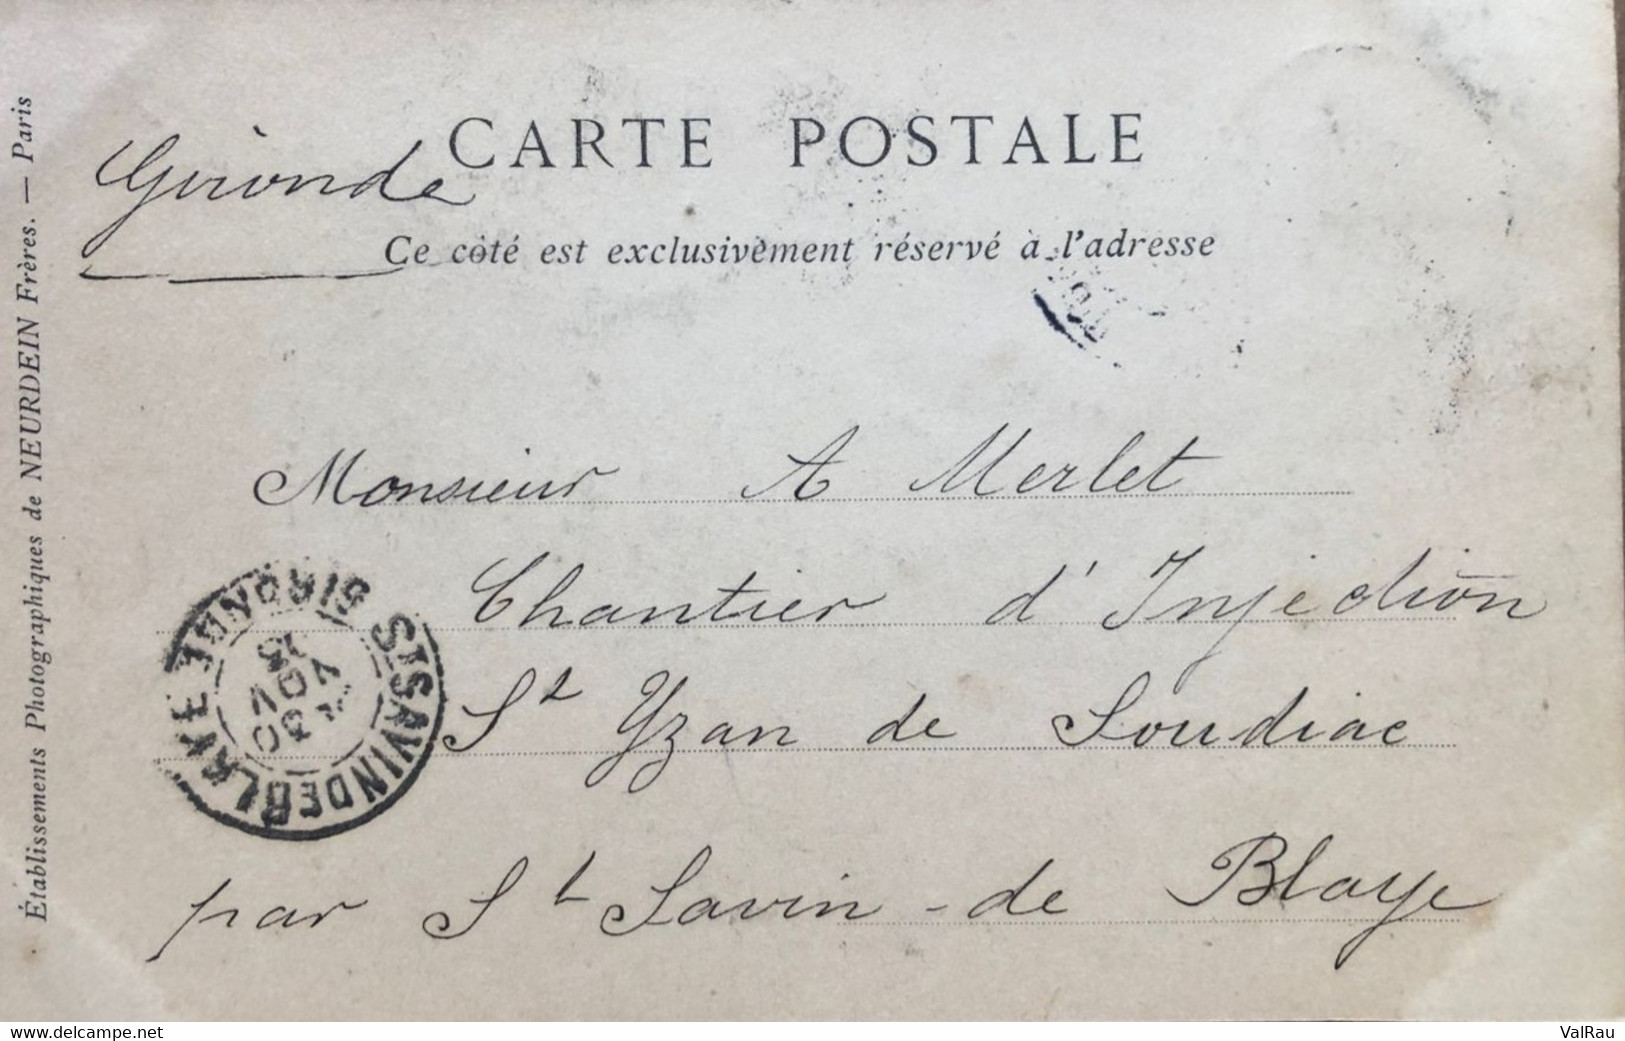 CARTE POSTALE
Gironde
Ce côté est exclusivement réservé à l'adresse
Établissements Photographiques de NEURDEIN Frères. — Paris
Monsieur A Merlet
Chantier d'Injection
St Yzan de Soudiac
par St Savin - de Blaye
ST SAVIN DE BLAYE
NOV
www.delcampe.net
ValRau